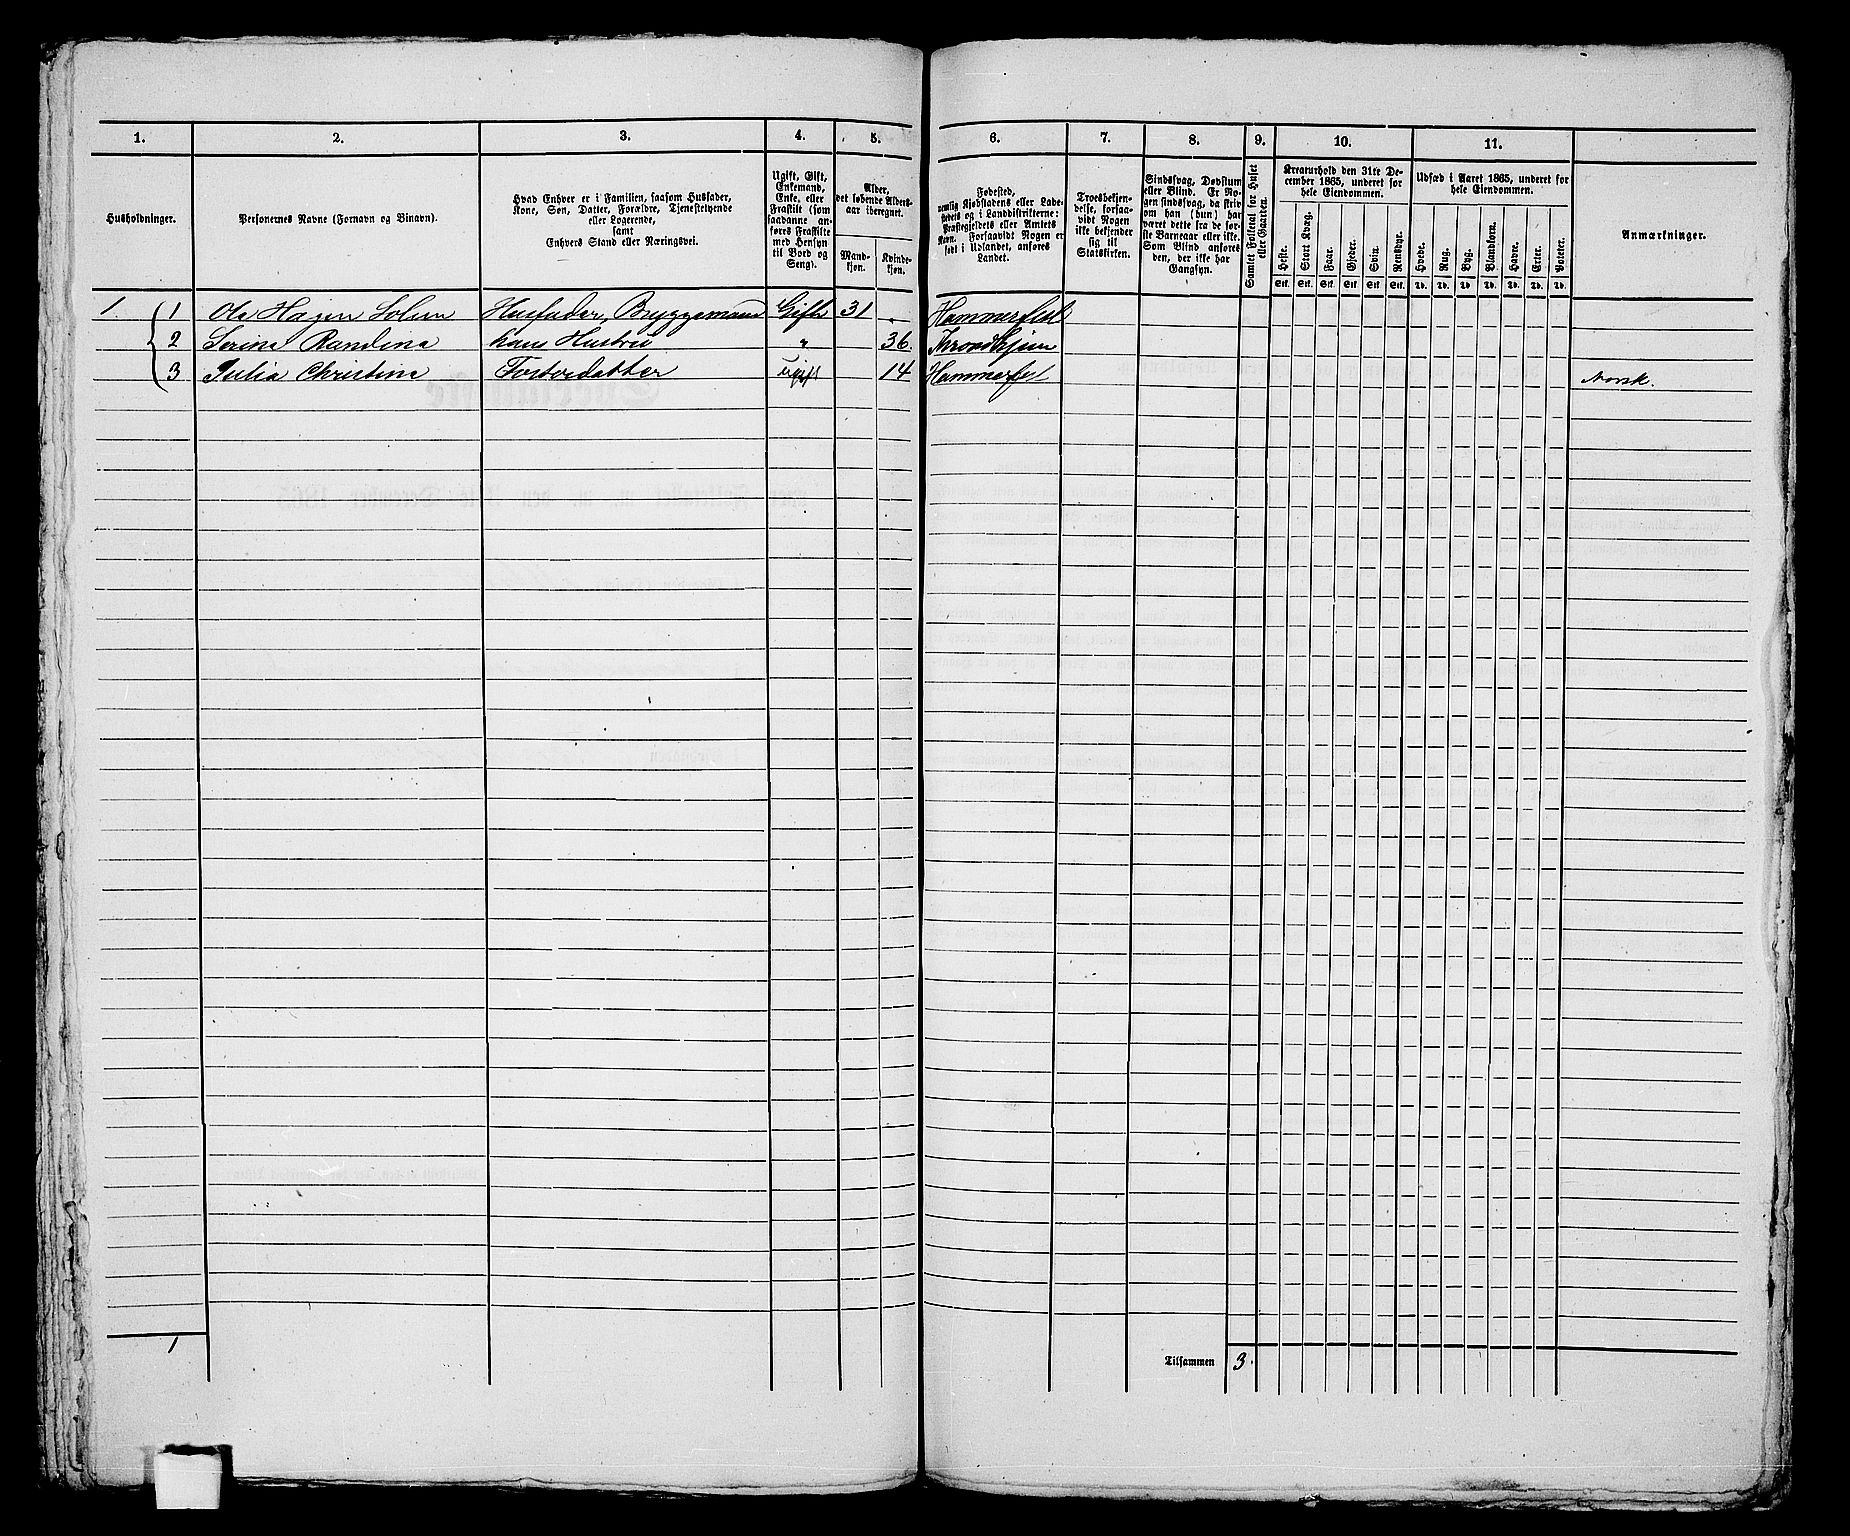 1. 2. 3. 4. 5. 6. 7. 8. 9. 10. 11.
Husholdninger.
Personernes Navne (Fornavn og Binavn).
Hvad Enhver er i Familien, saasom Husfader,
Kone, Søn, Datter, Forældre, Tjenestetyende
eller Logerende,
samt
Enhvers Stand eller Næringsvei.
Ugift, Gift,
Enkemand,
Enke, eller
Fraskilt (som
saadanne an-
føres Fraskilte
med Hensyn
til Bord og
Seng).
Alder,
det løbende Alders-
aar iberegnet.
Mand-
kjøn.
Kvinde-
kjøn.
Fødested,
nemlig Kjøbstadens eller Lade-
stedets og i Landdistrikterne:
Præstegjeldets eller Amtets
Navn. Forsaavidt Nogen er
født i Udlandet, anføres
Landet.
Troesbekjen-
delse, forsaa-
vidt Nogen
ikke bekjender
sig til
Statskirken.
Sindssvag, Døvstum
eller Blind. Er No-
gen sindssvag, da skriv
om han (hun) har
været dette fra de før-
ste Barneaar eller ikke.
Som Blind anføres
den, der ikke har
Gangsyn.
Samlet Folketal for Huset
eller Gaarden.
Kreaturhold den 31te De-
cember 1865, underet for
hele Eiendommen.
Heste. Stort Kvæg. Faar. Gjeder. Svin. Rensdyr.
Stk. Stk. Stk. Stk. Stk. Stk.
Udsæd i Aaret 1865, underet for
hele Eiendommen.
Hvede. Rug. Byg. Blandkorn. Havre. Erter. Poteter.
Td. Td. Td. Td. Td. Td. Td.
Anmærkninger.
1 1 Ole Hagen Solem Husfader, Bryggemand Gift 31 Hammerfest
2 Serina Randena hans Hustru " 36. Throndhjem
3 Julia Christina Fosterdatter ugift 14 Hammerfest Norsk.
1
Tilsammen 3.